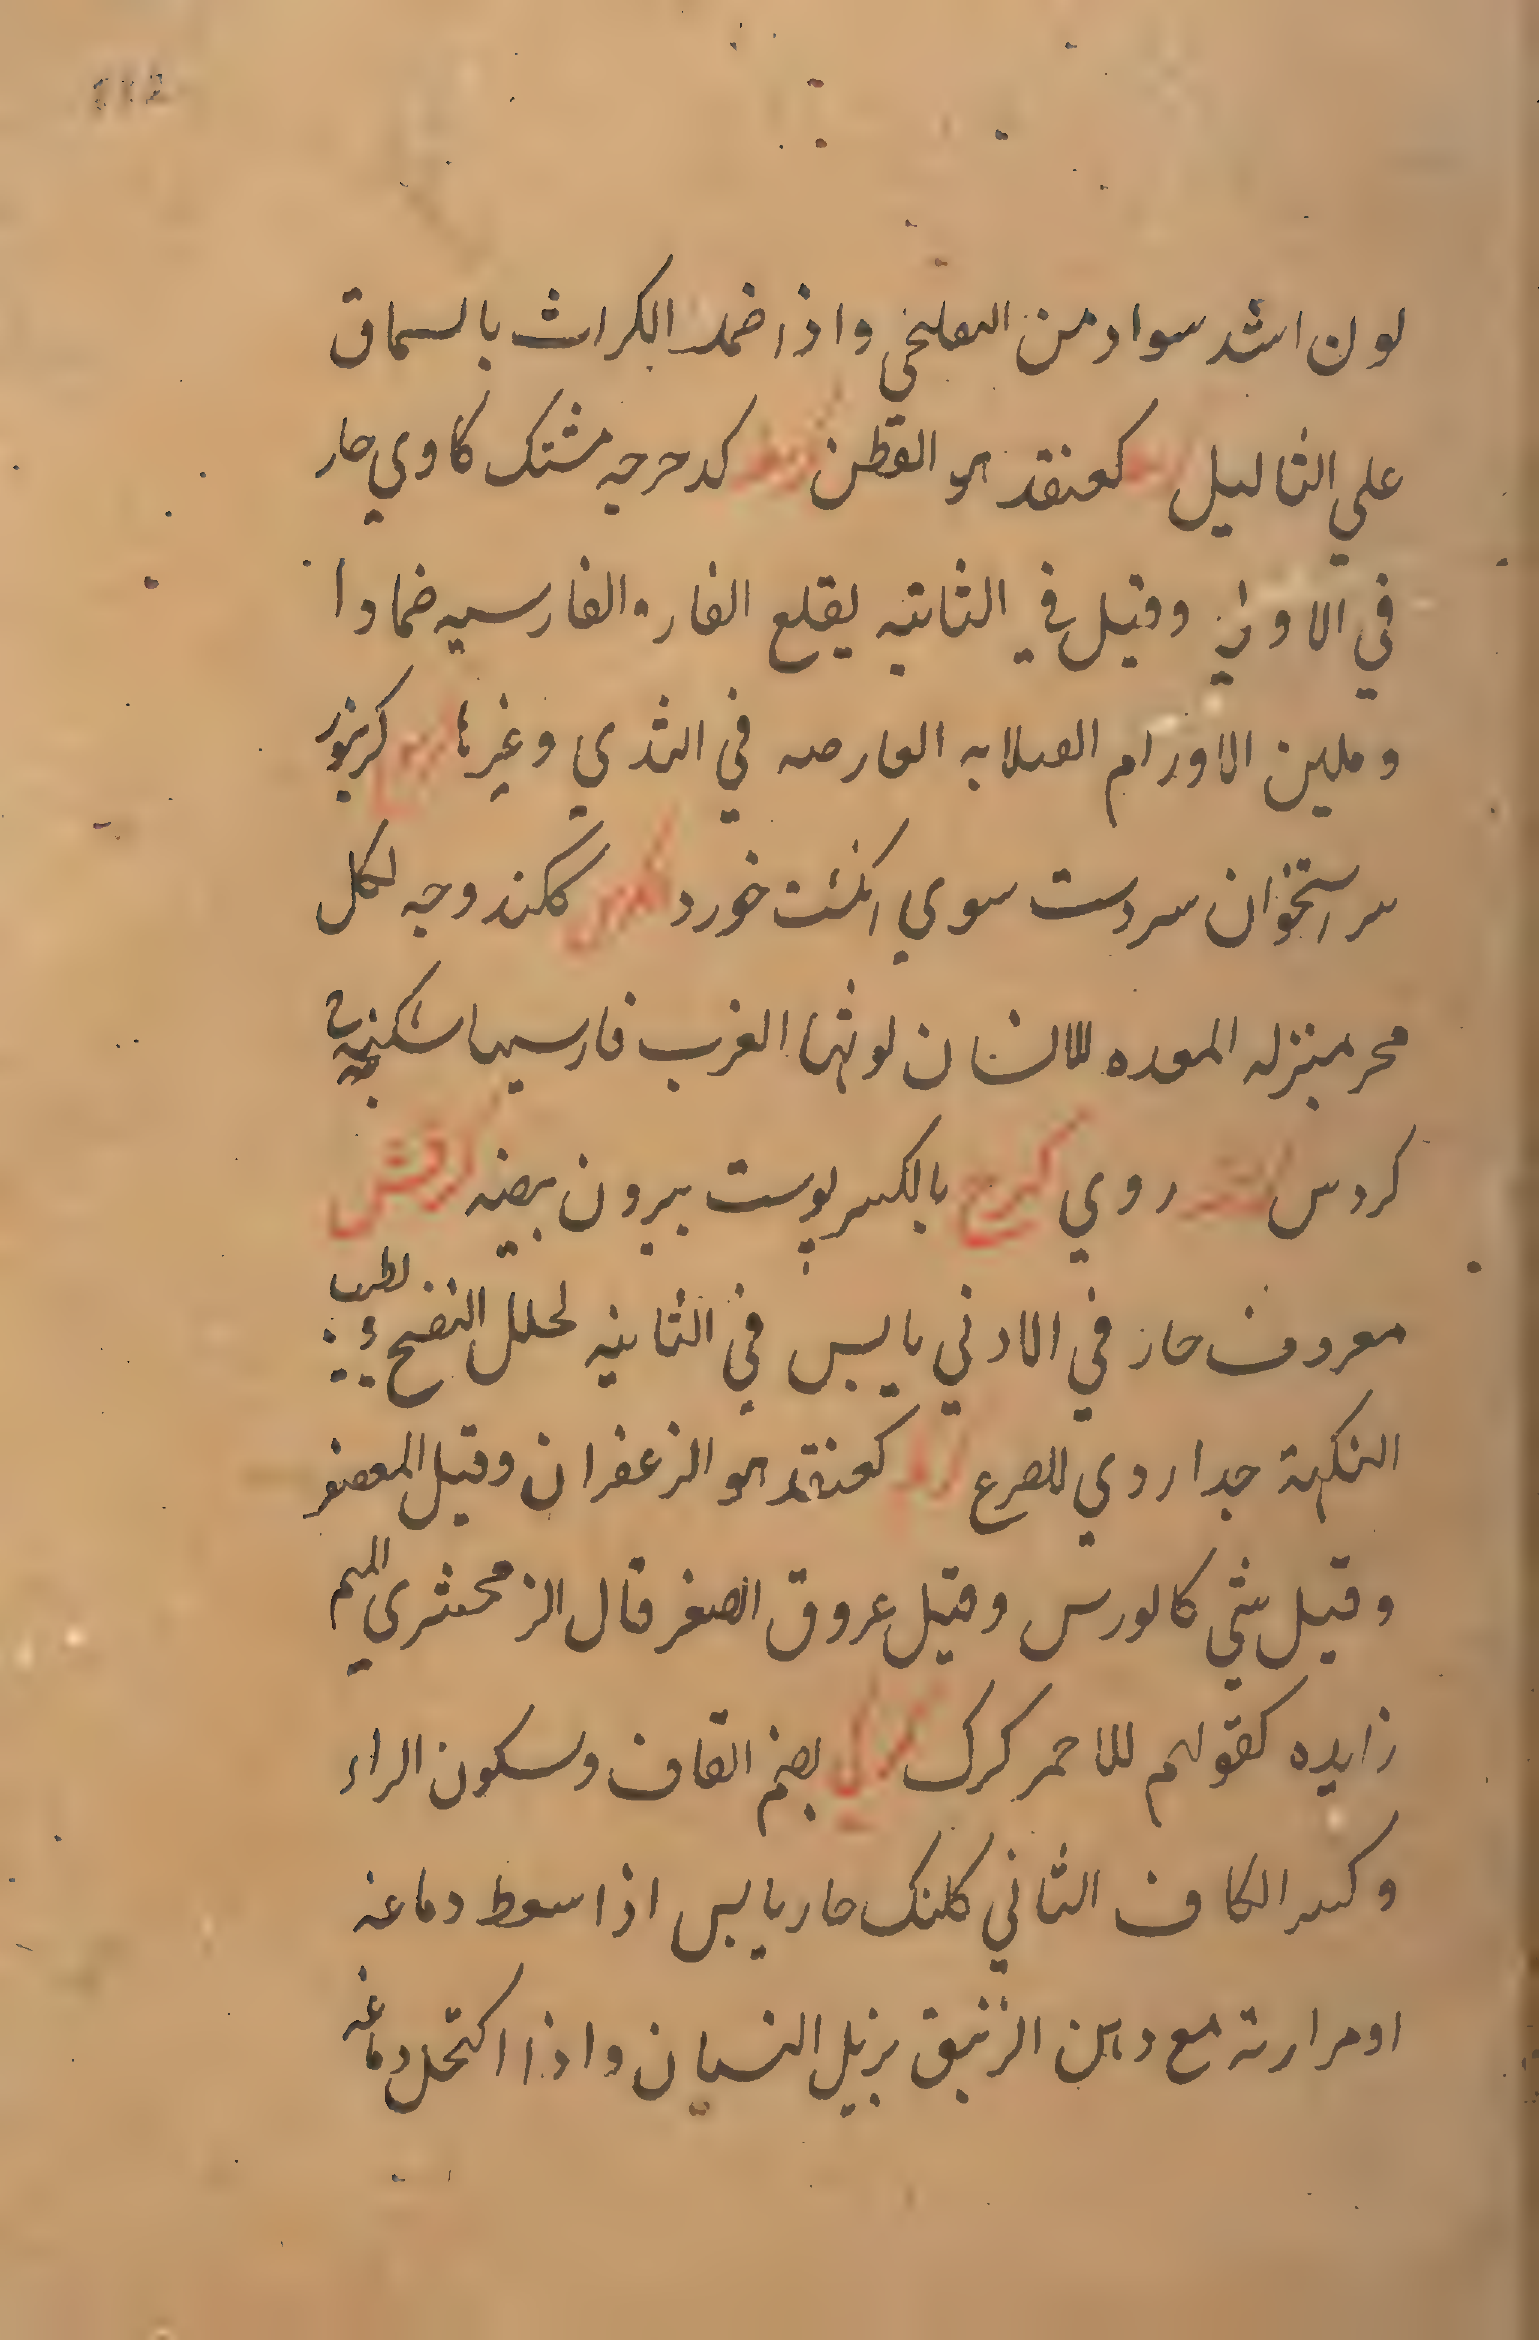 لون اشد سواد من البعلبخي واذا ضمد الكراث بالسماق
علي الثاليل كعنقد هو القطن كدحرجه مشتك كاوي حار
في الاولي وقيل في الثانيه يقلع الفاره الفارسيه ضمادا
وملين الاورام الصلابه العارضه في الثدي وغيرها
سر استخوان سردست سوي انكشت خورد ككند وجه لكل
محر منزله المعده للانسان لونها الغرب فارسيها شكنبه
كردس روي كرح بالكسر پوست بيرون بيضه كرفس
معروف حار في الادني يابس في الثانيه لحلل النفخ و يطيب
النكهة جدا ردي للصرع كعنقد هو الزعفران وقيل المعصفر
وقيل شي كالورس وقيل عروق الصفر قال الزمحشري الميم
زايده كقولهم للاحمر كرك كركي بضم القاف وسكون الراء
وكسر الكاف الثاني كلنك حار يابس اذا سعط دماغه
او مرارته مع دهن الزنبق يزيل النسيان واذا اكتحل دماغه